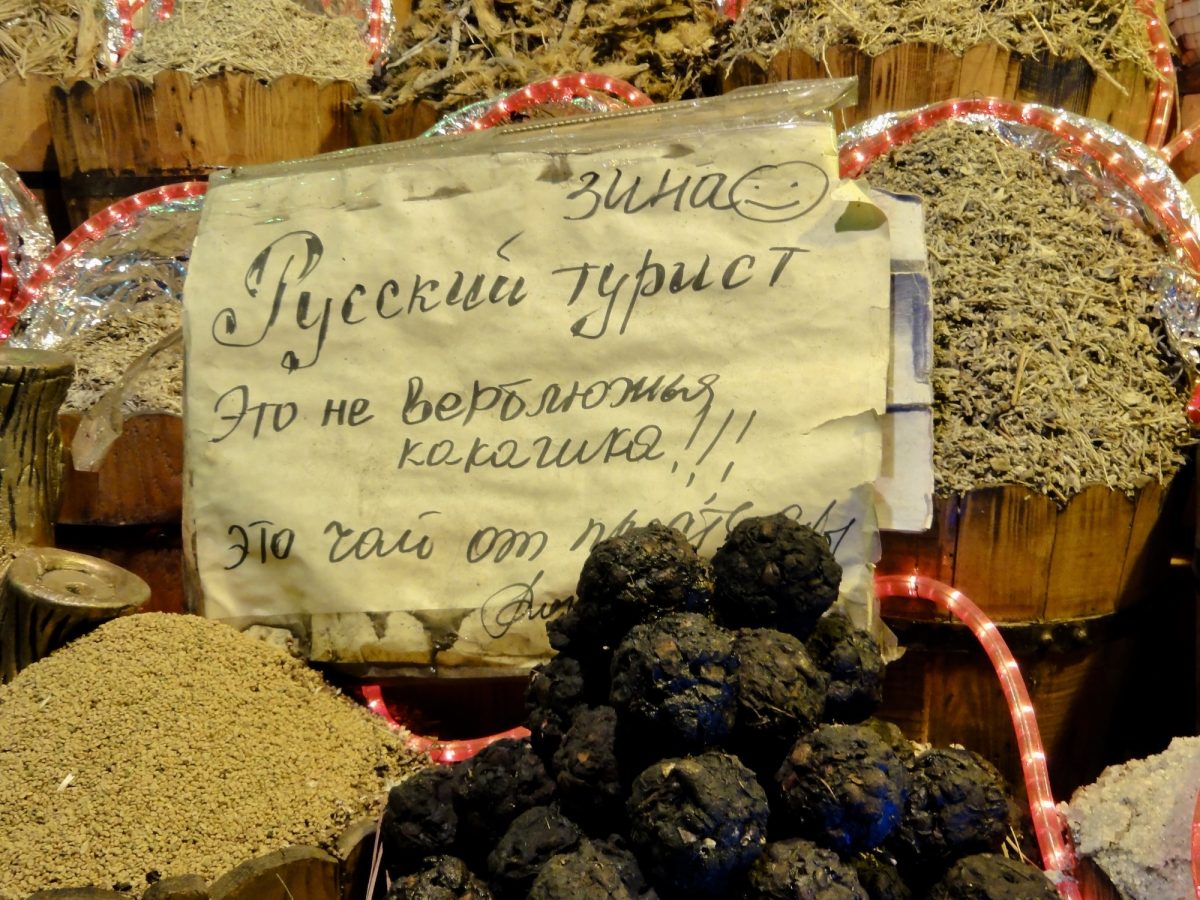 зина
Русский турист
Это не верблюжья
какашка!!!
это чай от